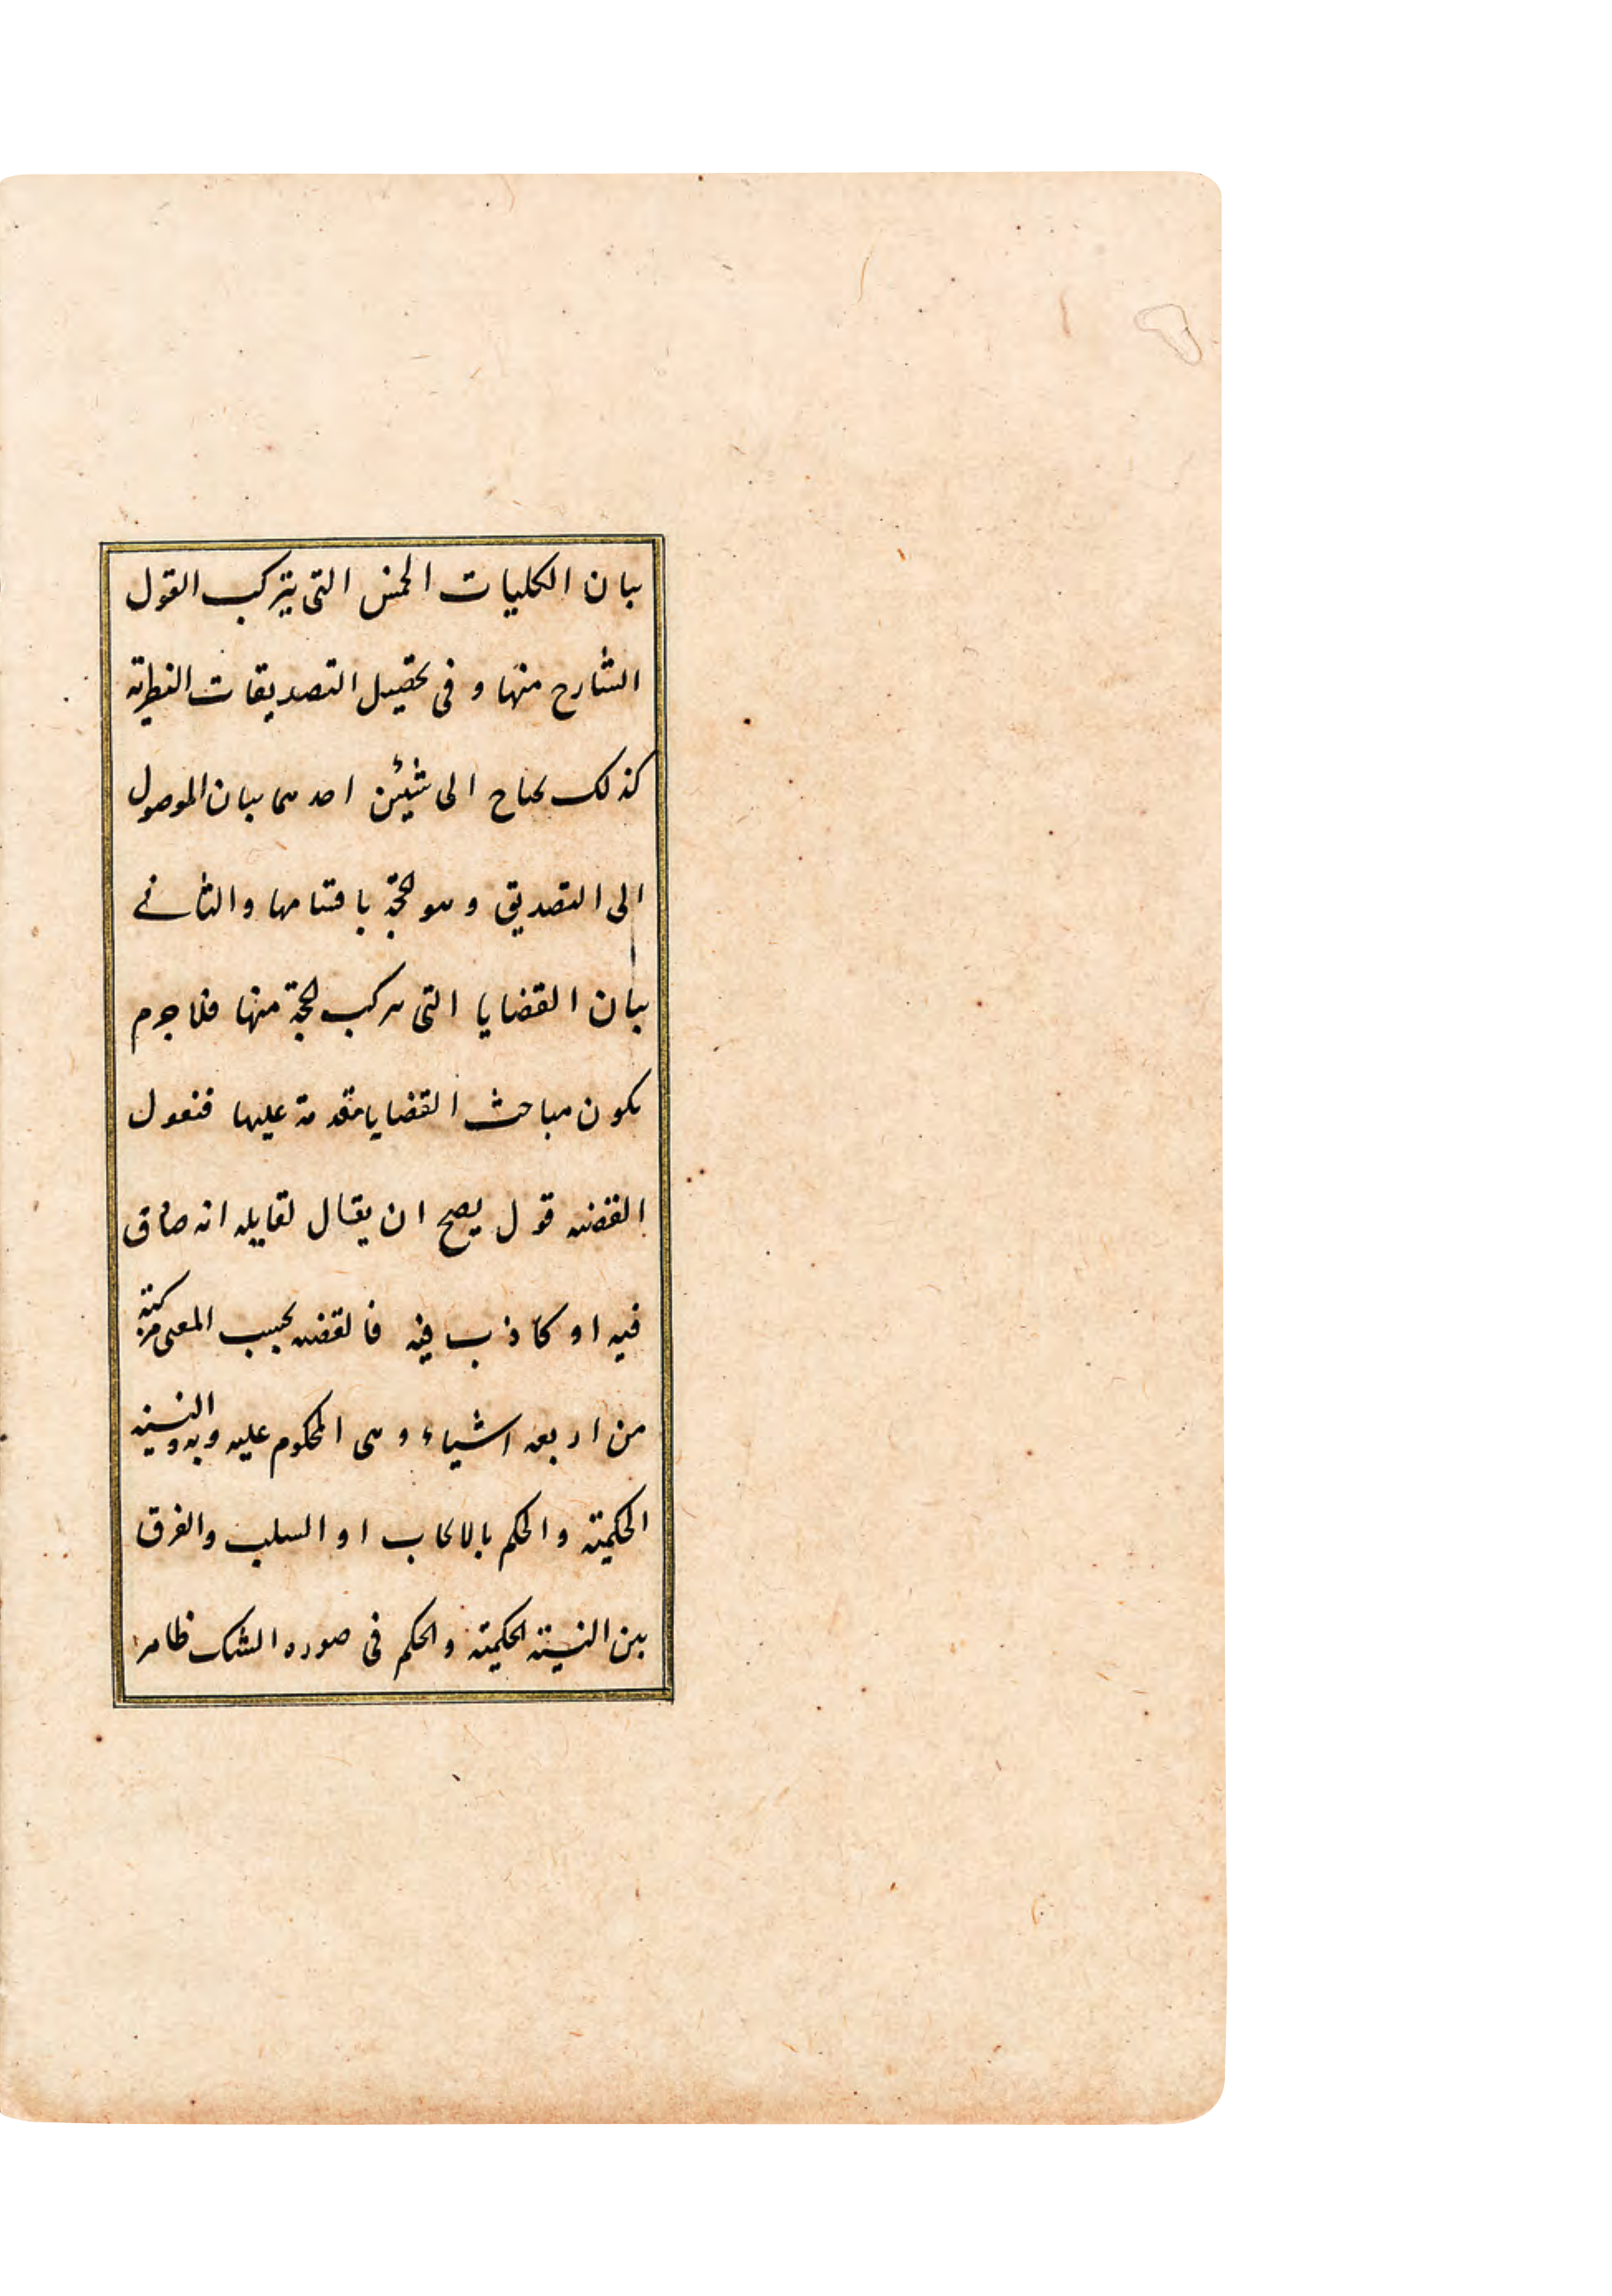 بيان الكليات الخمس التى يتركب القول
الشارح منها و فى تحصيل التصديقات النظرية
كذلك يحتاج الى شيئين احدهما بيان الموصول
الى التصديق وهو الحجة باقسامها والثانى
بيان القضايا التى يتركب الحجة منها فلا جرم
يكون مباحث القضايا مقدمة عليها فنقول
القضيه قول يصح ان يقال لقايله انه صادق
فيه او كاذب فيه فالقضيه بحسب المعنى مركبة
من اربعه اشياء وهى المحكوم عليه و به والنسبة
الحكمية والحكم بالايجاب او السلب والفرق
بين النسبة الحكمية والحكم فى صوره الشك ظاهر